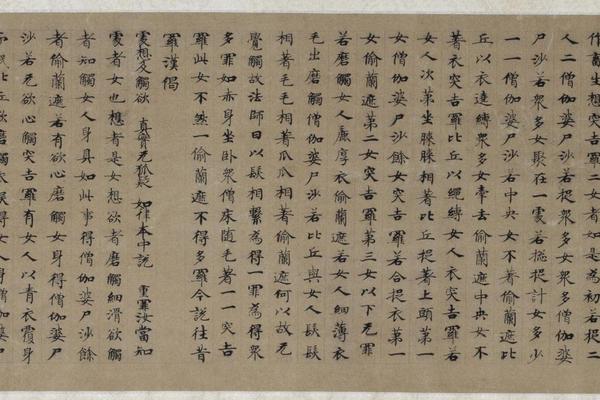 作畜生想突吉羅二女者如是為初若捉二
人二僧伽婆尸沙若捉衆多女衆多僧伽婆
尸沙若衆多女聚在一處若捴捉計女多少
一一僧伽婆尸沙若中央女不著偷蘭遮比
丘以衣遶縛衆多女牽去偷蘭遮中央女不
著衣突吉羅比丘以繩縛女人衣突吉羅若
女人次第坐膝膝相著比丘捉著上頭第一
女僧伽婆尸沙餘女突吉羅若合捉衣第一
女偷蘭遮第二女突吉羅第三女以下无罪
若磨觸女人麁厚衣偷蘭遮若女人細薄衣
毛出磨觸僧伽婆尸沙若比丘與女人髮髮
相著毛毛相著爪爪相著偷蘭遮何以故无
覺觸故法師曰以髮相繫為得一罪為得衆
多罪如赤身坐卧衆僧床随毛著一一突吉
羅此女不然一偷蘭遮不得多羅今說往昔
羅漢偈
處想及觸欲 真實无狐疑 如律本中說 重羅汝當知
處者女也想者是女想欲者磨觸細滑欲觸
者知觸女人身具如此事得僧伽婆尸沙餘
者偷蘭遮若有欲心磨觸女身得僧伽婆尸
沙若无欲心觸突吉羅有女人以青衣覆身
比丘欲磨觸衣誤得女人身僧伽婆尸